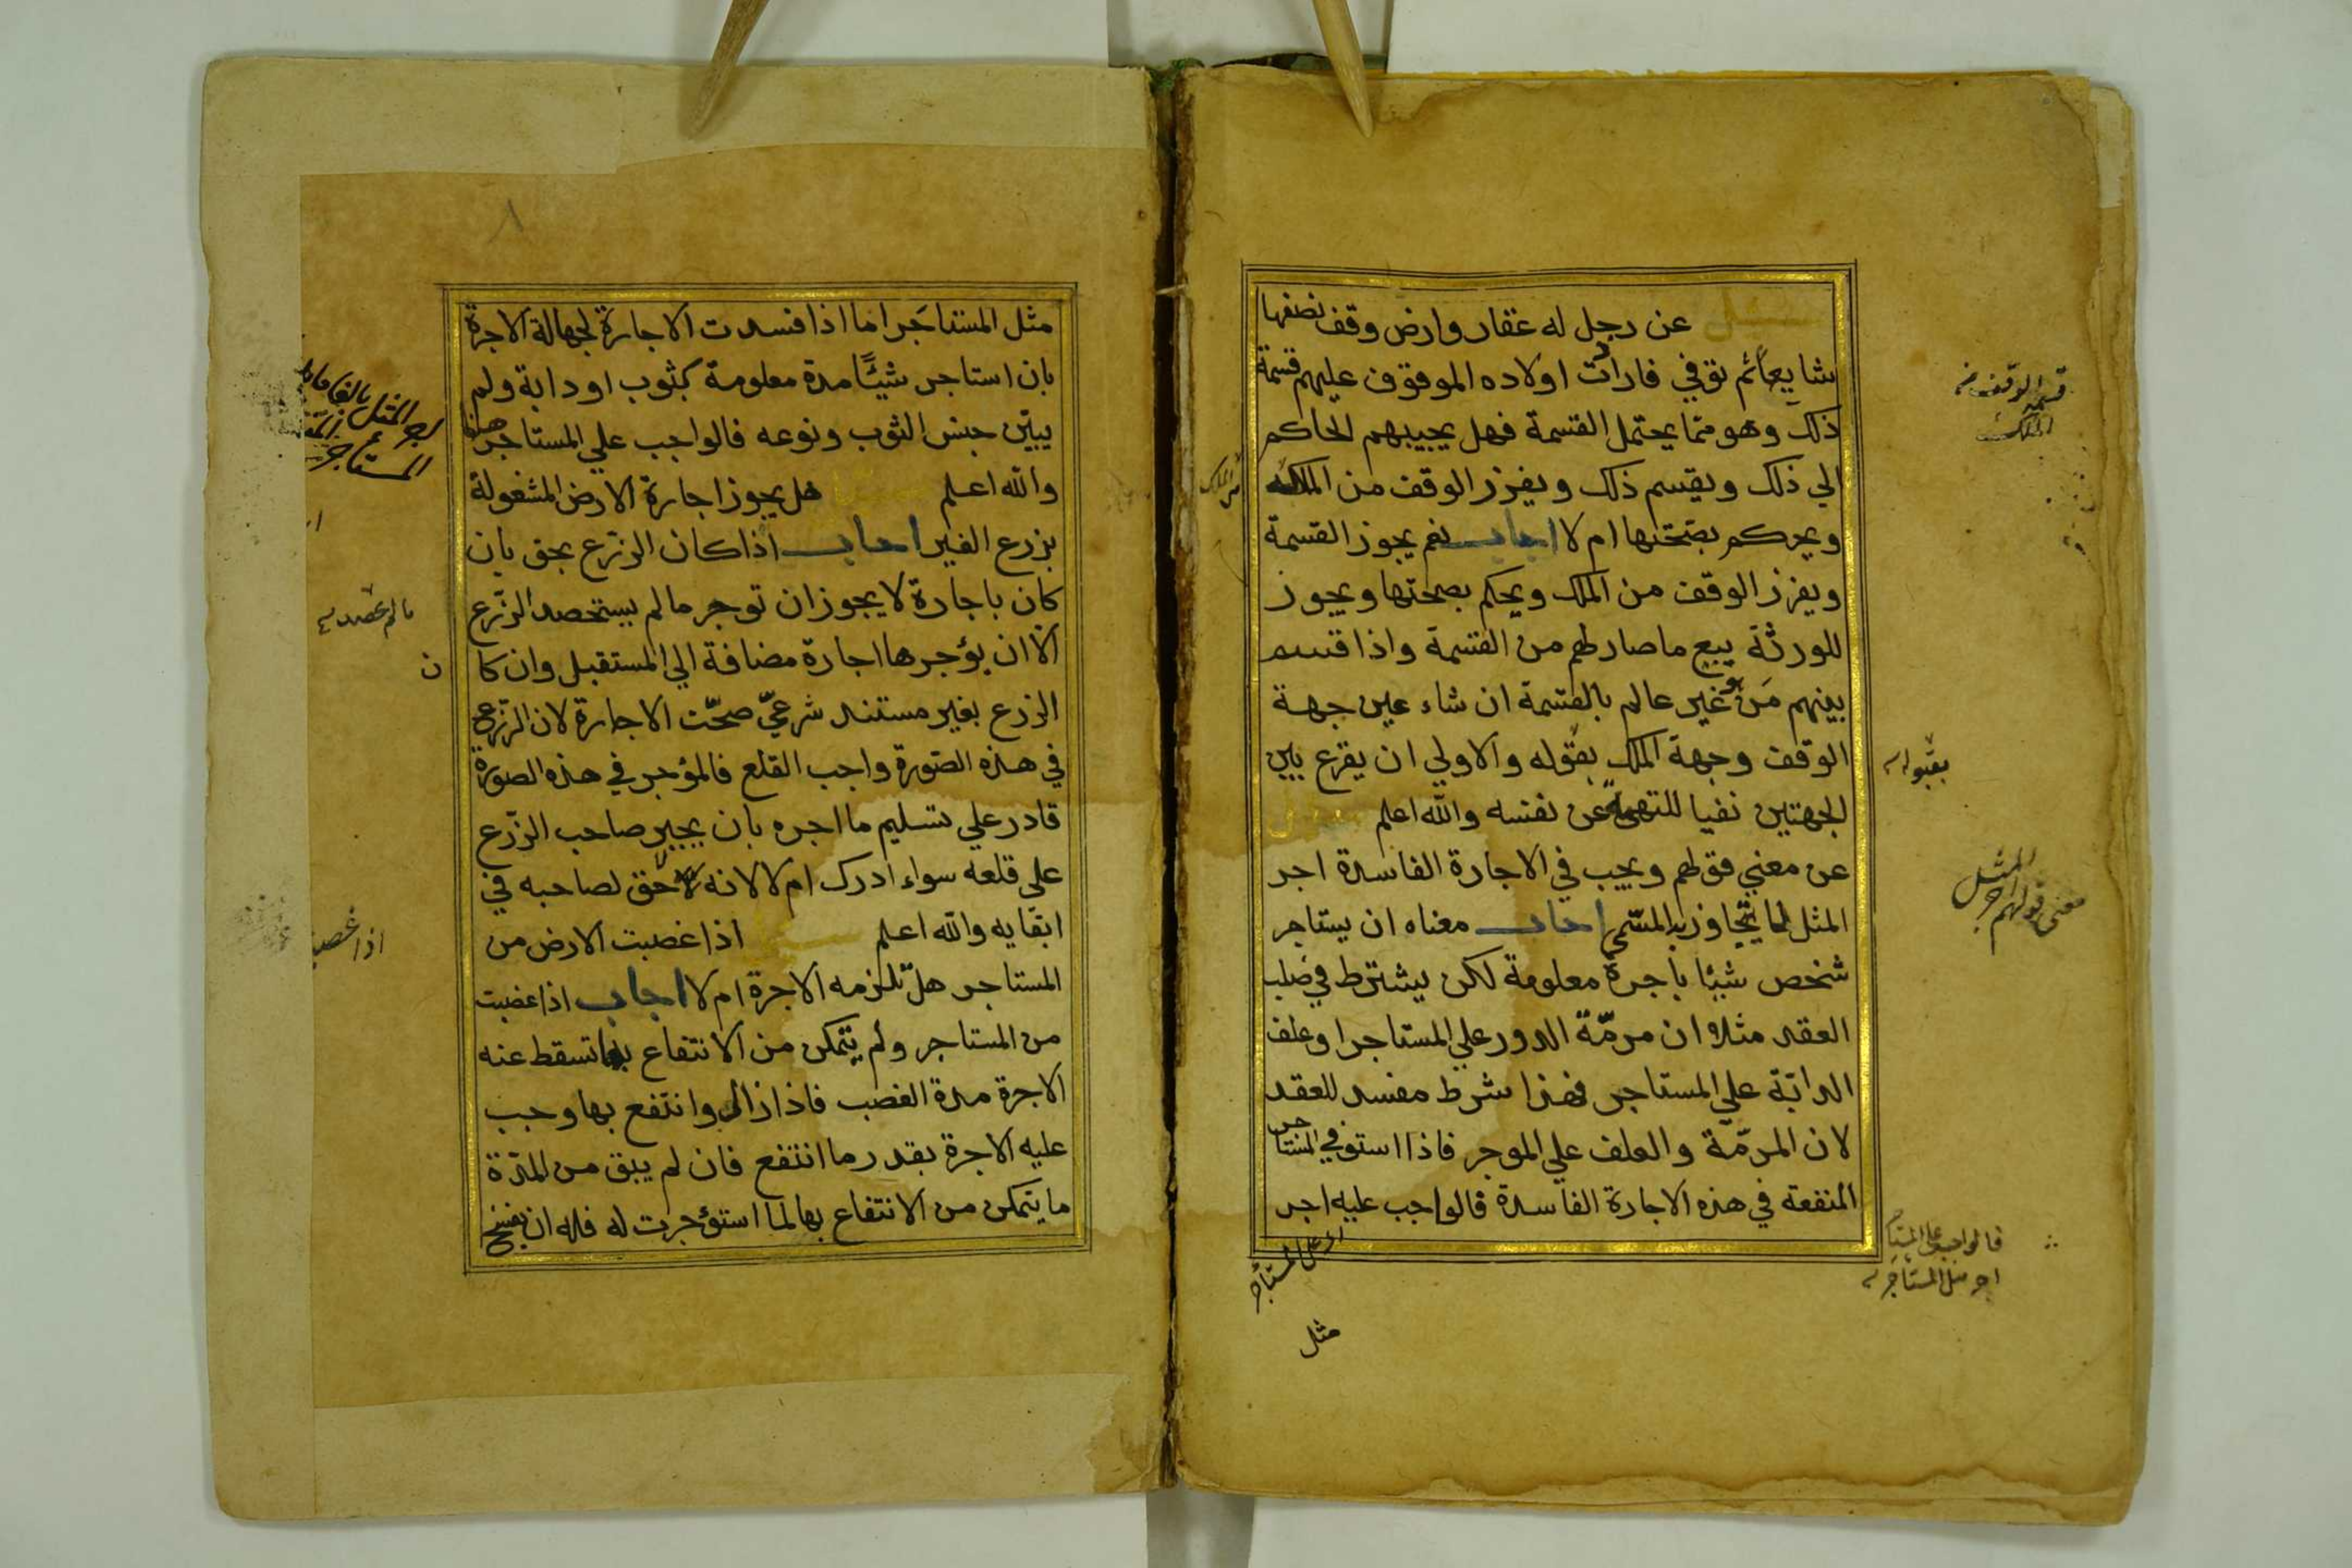 سئل عن رجل له عقار وارض وقف نصفها
شايعا ثم توفي فارادت اولاده الموقوف عليهم قسمة
ذلك وهو مما يحتمل القسمة فهل يجيبهم الحاكم
الي ذلك ويقسم ذلك ويفرز الوقف من الملك
ويحكم بصحتها ام لا اجاب نعم يجوز القسمة
ويفرز الوقف من الملك ويحكم بصحتها ويجوز
للورثة بيع ما صار لهم من القسمة واذا قسم
بينهم من هو غير عالم بالقسمة ان شاء عين جهة
الوقف وجهة الملك بقوله والاولي ان يقرع بين
الجهتين نفيا للتهمة عن نفسه والله اعلم سئل
عن معني قولهم ويجب في الاجارة الفاسدة اجر
المثل لا يتجاوز به المسمي اجاب معناه ان يستاجر
شخص شيئا باجرة معلومة لكن يشترط في صلب
العقد مثلا ان مرمّة الدور علي المستاجر او علف
الدابّة علي المستاجر فهذا شرط مفسد للعقد
لان المرمّة والعلف علي الموجر فاذا استوفي المستاجر
المنفعة في هذه الاجارة الفاسدة فالواجب عليه اجر
قسمة الوقف من
الملك
بقبوله
معني قولهم اجر المثل
فالواجب علي المستاجر
اجر مثل المستاجر
مثل
مثل المستاجر اما اذا فسدت الاجارة لجهالة الاجرة
بان استاجر شيئًا مدة معلومة كثوب او دابة ولم
يبيّن جنس الثوب ونوعه فالواجب علي المستاجر
والله اعلم سئل هل يجوز اجارة الارض المشغولة
بزرع الغير اجاب اذا كان الزّرع بحق بان
كان باجارة لا يجوز ان توجر ما لم يستحصد الزّرع
الا ان يؤجرها اجارة مضافة الي المستقبل وان كا
ن
الزرع بغير مستند شرعيّ صحّت الاجارة لان الزّرع
في هذه الصّورة واجب القلع فالمؤجر في هذه الصورة
قادر علي تسليم ما اجره بان يجبر صاحب الزّرع
علي قلعه سواء ادرك ام لا لانه لا حق لصاحبه في
ابقايه والله اعلم سئل اذا غصبت الارض من
المستاجر هل تلزمه الاجرة ام لا اجاب اذا غصبت
من المستاجر ولم يتمكن من الانتفاع بها تسقط عنه
الاجرة مدة الغصب فاذا زال وانتفع بها وجب
عليه الاجرة بقدر ما انتفع فان لم يبق من المدّة
ما يتمكن من الانتفاع بها لما استؤجرت له فله ان يفسخ
اذا غصبت
٨